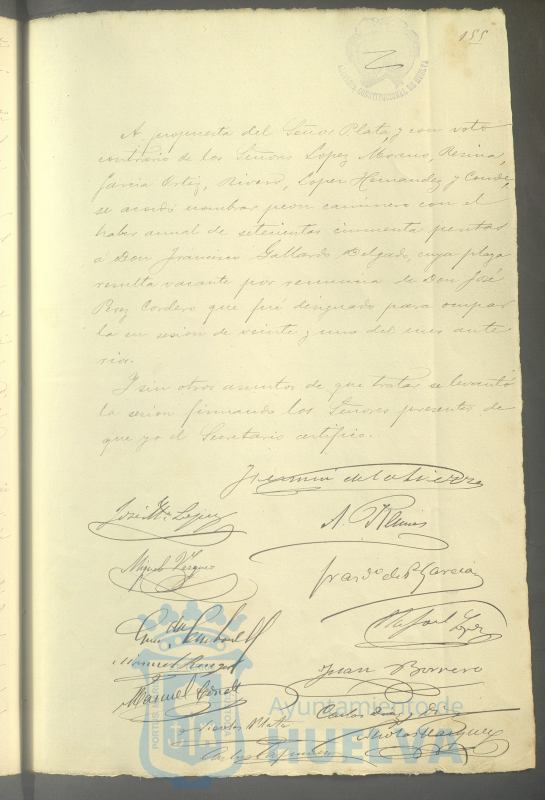 155
A propuesta del Señor Plata, y con voto
contrario de los Señores Lopez Moreno, Resina,
Garcia Ortiz, Rivero, Lopez Hernandez y Conde,
se acordó nombrar peon caminero con el
haber anual de setecientas cincuenta pesetas
á Don Francisco Gallardo Delgado, cuya plaza
resulta vacante por renuncia de Don José
Perez Cordero que fué designado para ocupar
la en sesion de veinte y uno del mes ante
rior.
Y sin otros asuntos de que tratar se levantó
la sesion firmando los Señores presentes de
que yo el Secretario certifico.
José Mª Lopez
Miguel
Franco de P. Garcia
Rafael Lopez
Manuel
Juan Borrero
Manuel Conde
Nicolas Plata
Carlos
Nicolas Vazquez
Ayuntamiento de
HUELVA